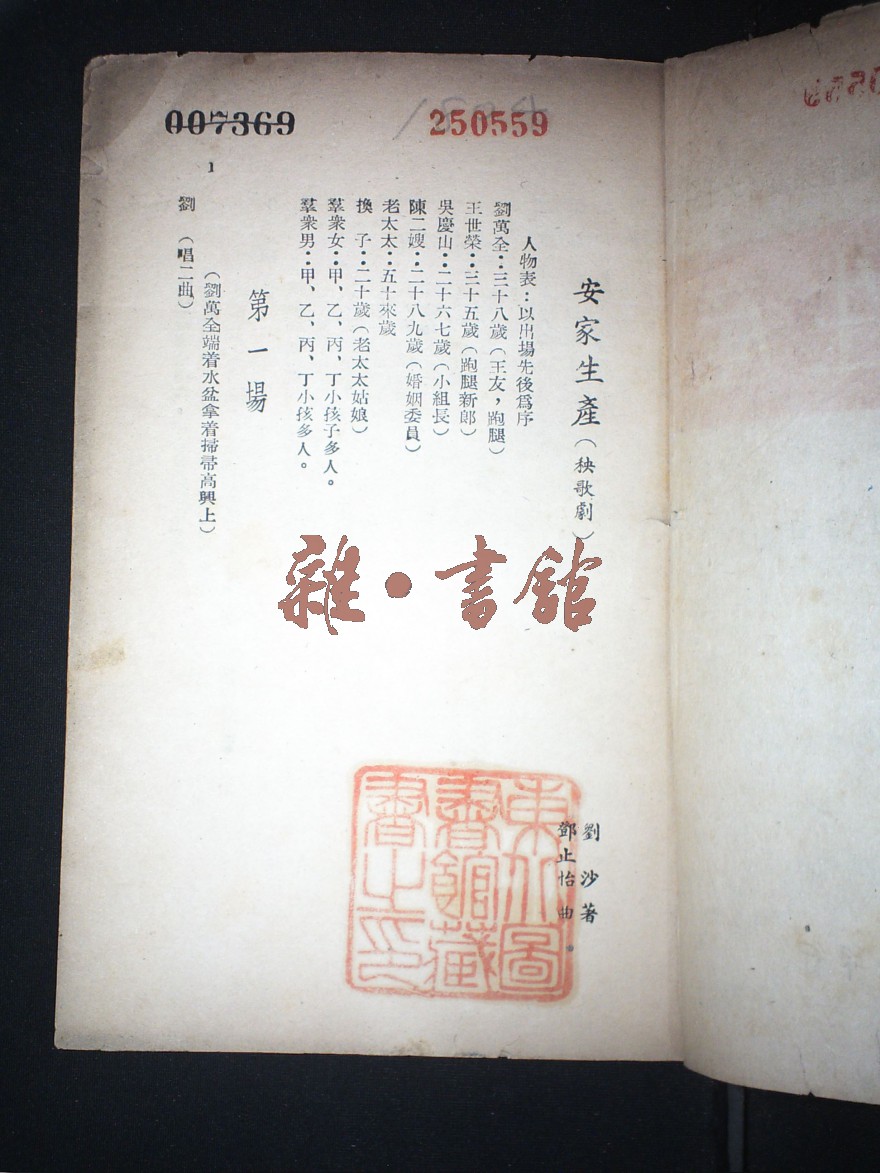 007369
250559
安家生產(秧歌劇)
劉沙著
鄧止怡曲
人物表:以出場先後爲序
劉萬全:三十八歲(王友,跑腿)
王世榮:三十五歲(跑腿新郎)
吳慶山:二十六七歲(小組長)
陳二嫂:二十八九歲(婚姻委員)
老太太:五十來歲
換 子:二十歲(老太太姑娘)
羣衆女:甲、乙、丙、丁小孩子多人。
羣衆男:甲、乙、丙、丁小孩多人。
第一場
(劉萬全端着水盆拿着掃帚高興上)
劉 (唱二曲)
1
雜·書館
東北圖
書館藏
書之印